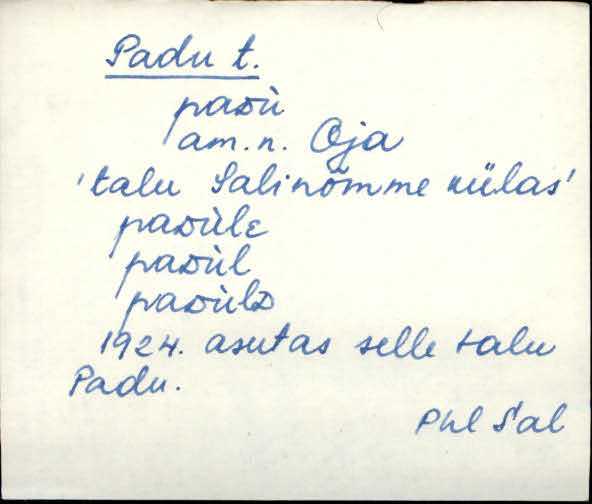 Padu t.
paᴅù
am.n. Oja
'talu Salinõmme külas'
paᴅùlε
paᴅùl
paᴅùlᴅ
1924. asutas selle talu
Padu.
Phl Sal